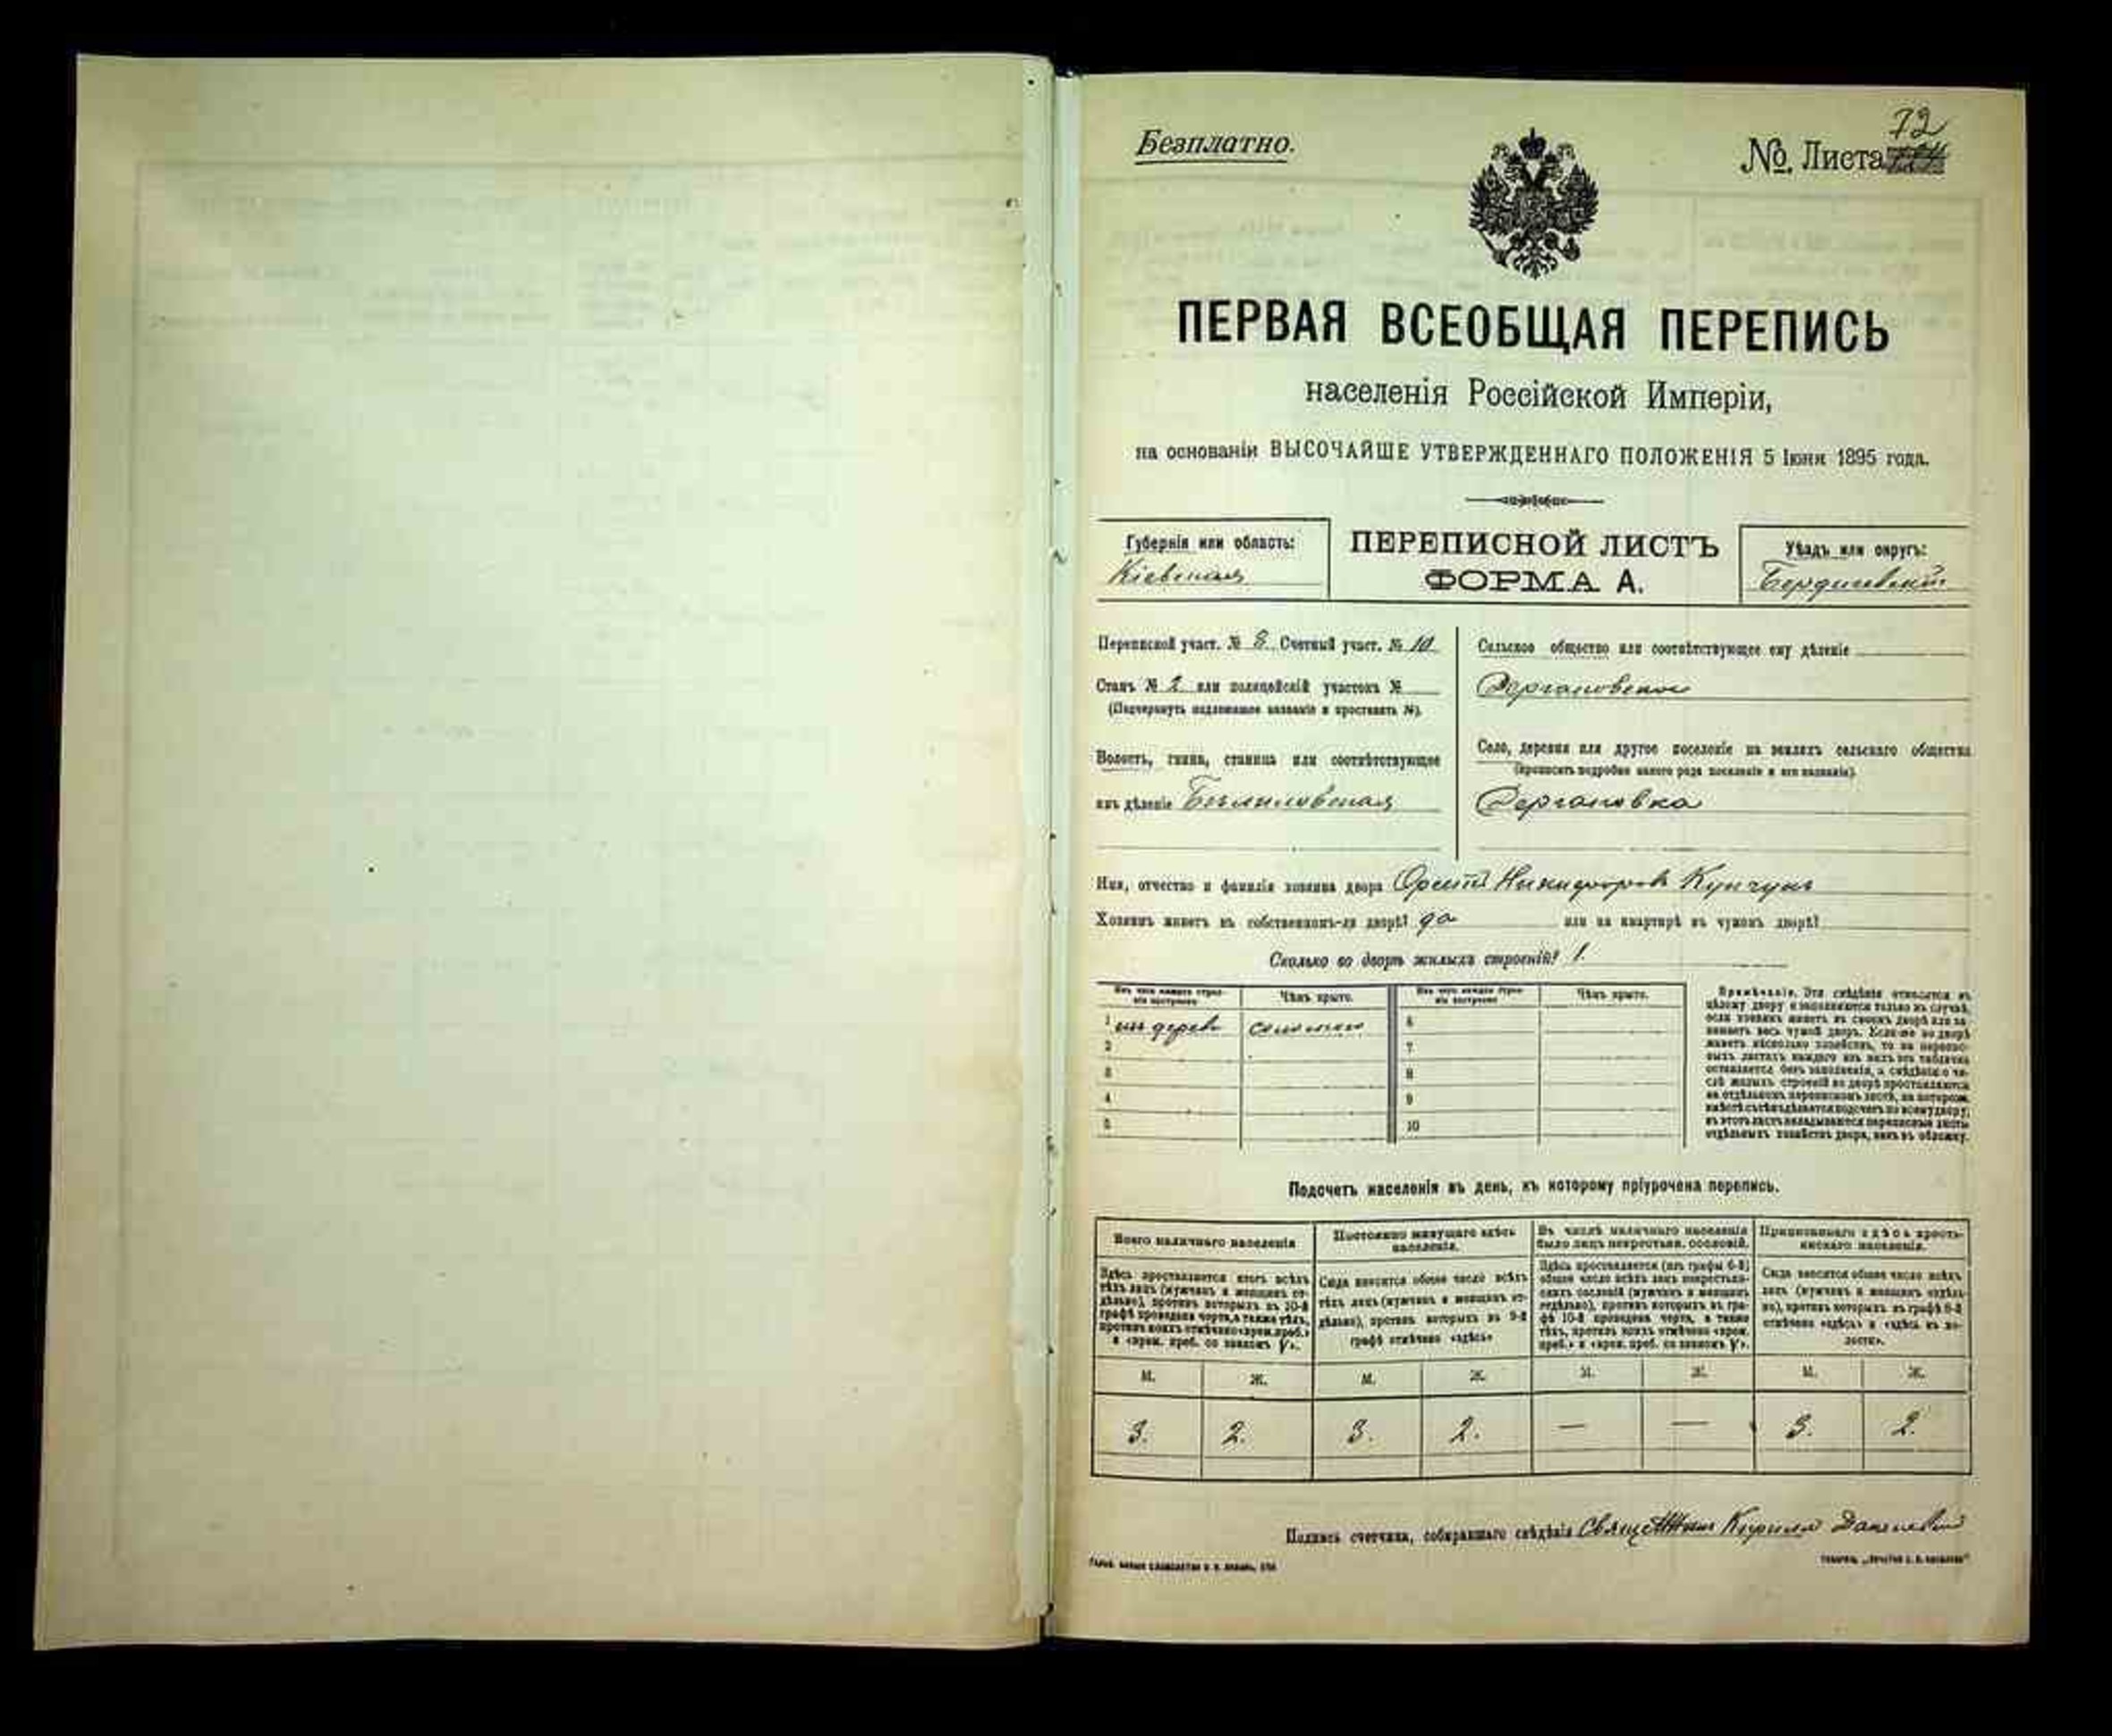 Безплатно.
72
№. Листа
ПЕРВАЯ ВСЕОБЩАЯ ПЕРЕПИСЬ
населенія Россійской Имперіи,
на основаніи ВЫСОЧАЙШЕ УТВЕРЖДЕННАГО ПОЛОЖЕНІЯ 5 Іюня 1895 года.
Губернія или область:
Кіевская
ПЕРЕПИСНОЙ ЛИСТЪ
ФОРМА А.
Уѣздъ или округъ:
Бердичевскій
Переписной участ. № 8 Счетный участ. № 10
Станъ № 2 или полицейскій участокъ №
(Подчеркнуть надлежащее названіе и проставить №).
Волость, гмина, станица или соотвѣтствующее
имъ дѣленіе Бѣлиловская
Сельское общество или соотвѣтствующее ему дѣленіе
Дергановское
Село, деревня или другое поселеніе на земляхъ сельскаго общества
(прописать подробно какого рода поселеніе и его названіе).
Дергановка
Имя, отчество и фамилія хозяина двора Никифоровъ
Хозяинъ живетъ въ собственномъ-ли дворѣ? да или на квартирѣ въ чужомъ дворѣ?
Сколько во дворѣ жилыхъ строеній? 1.
Изъ чего каждое строеніе построено Чѣмъ крыто. Изъ чего каждое строеніе построено Чѣмъ крыто.
1 изъ дерев соломою 6
2 7
3 8
4 9
5 10
Примѣчаніе. Эти свѣдѣнія относятся къ
цѣлому двору и заполняются только въ случаѣ,
если хозяинъ живетъ въ своемъ дворѣ или занимаетъ
весь чужой дворъ. Если же во дворѣ
живетъ нѣсколько хозяйствъ, то на переписныхъ
листахъ каждаго изъ нихъ эта табличка
оставляется безъ заполненія, а свѣдѣнія о числѣ
жилыхъ строеній во дворѣ проставляются
на отдѣльномъ переписномъ листѣ, на которомъ
вмѣстѣ съ тѣмъ дѣлается подсчетъ по всему двору;
въ этотъ листъ вкладываются переписные листы
отдѣльныхъ хозяйствъ двора, какъ въ обложку.
Подсчетъ населенія въ день, къ которому пріурочена перепись.
Всего наличнаго населенія
Здѣсь проставляется итогъ всѣхъ
тѣхъ лицъ (мужчинъ и женщинъ отдѣльно),
противъ которыхъ въ 10-й
графѣ проведена черта, а также тѣхъ,
противъ коихъ отмѣчено «врем. преб.»
и «врем. преб. со знакомъ V».
Постоянно живущаго здѣсь
населенія.
Сюда вносится общее число всѣхъ
тѣхъ лицъ (мужчинъ и женщинъ отдѣльно),
противъ которыхъ въ 9-й
графѣ отмѣчено «здѣсь»
Въ числѣ наличнаго населенія
было лицъ некрестьян. сословій.
Здѣсь проставляется (изъ графы 6-й)
общее число всѣхъ лицъ некрестьянскихъ
сословій (мужчинъ и женщинъ
отдѣльно), противъ которыхъ въ графѣ
10-й проведена черта, а также
тѣхъ, противъ коихъ отмѣчено «врем.
преб.» и «врем. преб. со знакомъ V».
Приписаннаго здѣсь крестьянскаго
населенія.
Сюда вносится общее число всѣхъ
лицъ (мужчинъ и женщинъ отдѣльно),
противъ которыхъ въ графѣ 8-й
отмѣчено «здѣсь» и «здѣсь въ волости».
М. Ж. М. Ж. М. Ж. М. Ж.
3. 2. 3. 2. — — 3. 2.
Подпись счетчика, собиравшаго свѣдѣнія Кирилл